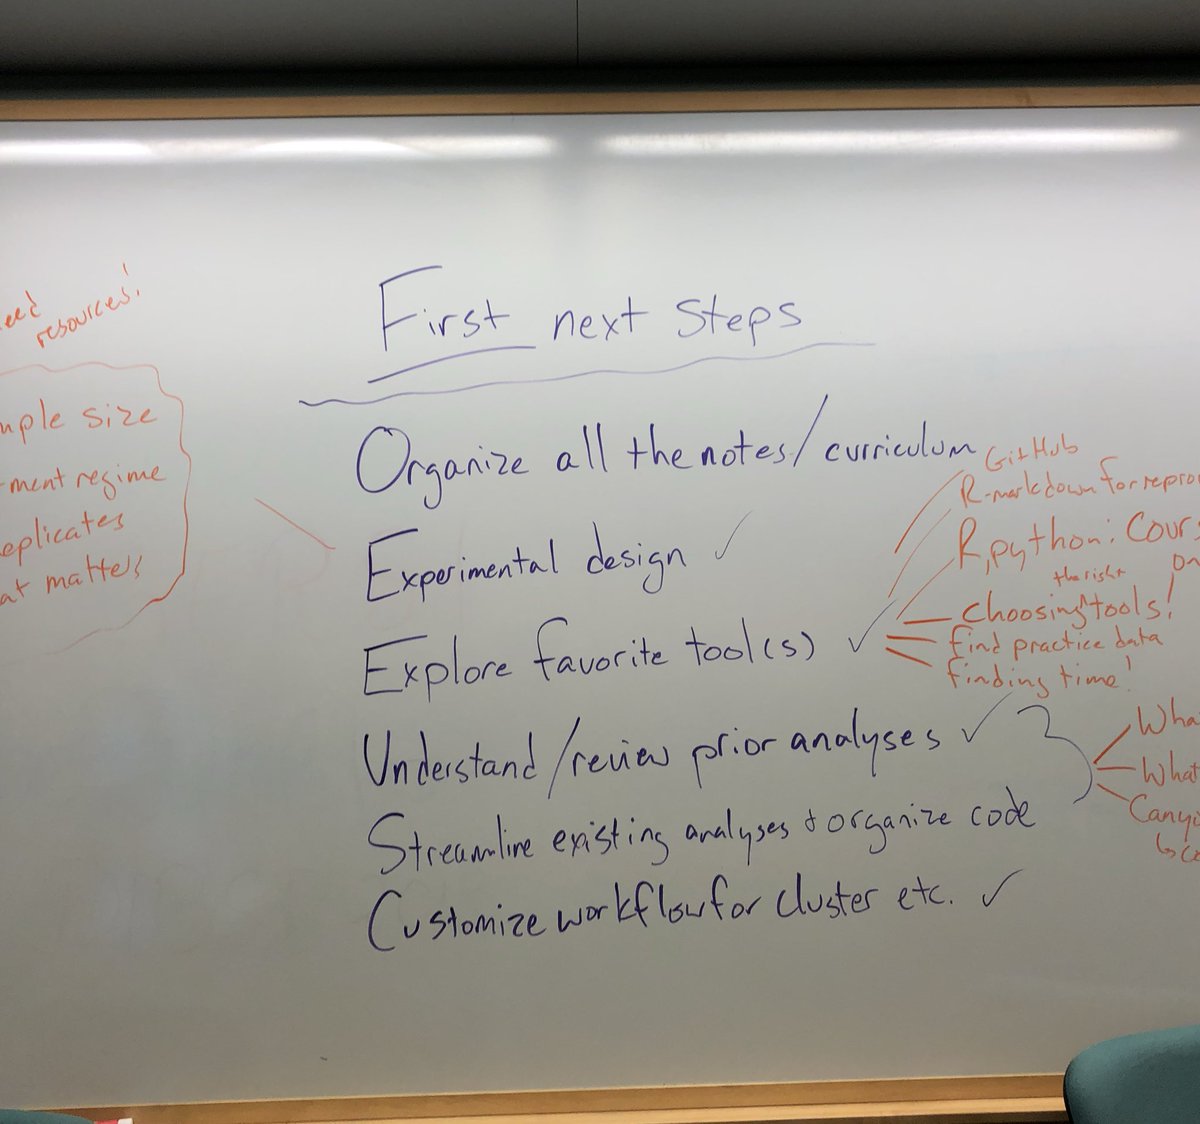 First next steps
Organize all the notes/curriculum
Experimental design ✓
Explore favorite tool(s) ✓
Understand/review prior analyses ✓
Streamline existing analyses + organize code
Customize workflow for cluster etc. ✓
eed
resources!
mple size
tment regime
eplicates
at matters
GitHub
R-markdown for repro
R, python: Cours
the right
choosing^tools!
find practice data
finding time!
Wha
What
Can yo